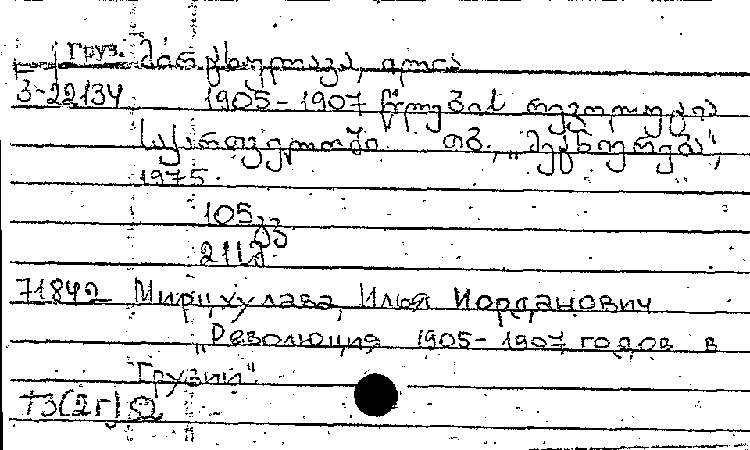 Груз. მირცხულავა, ილია
3-22134 1905-1907 წლების რევოლუცია
საქართველოში. თბ., „მეცნიერება",
1975.
105 გვ
211 გ
71842 Мирцхулава, Илья Иорданович
„Революция 1905-1907 годов в
Грузии".
Т3(2Г)